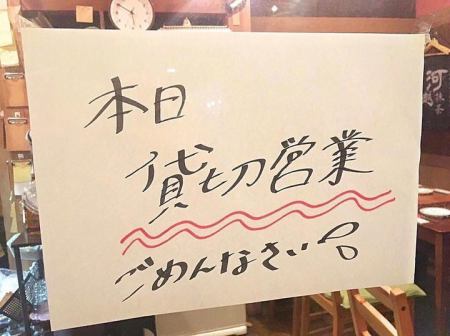 本日
貸切営業
ごめんなさい。